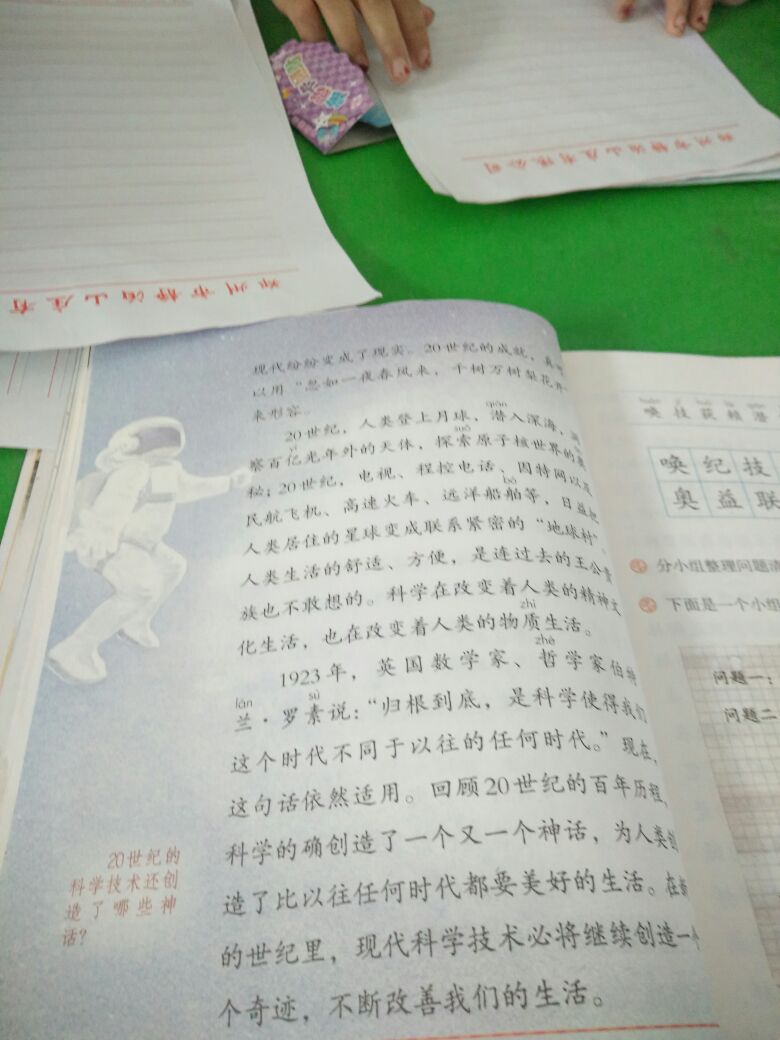 郑州市静泊山庄有
郑州市静泊山庄有限公司
现代纷纷变成了现实。20世纪的成就，真
以用“忽如一夜春风来，千树万树梨花开
来形容。
qián
20世纪，人类登上月球，潜入深海，洞
yì suǒ
察百亿光年外的天体，探索原子核世界的奥
秘；20世纪，电视、程控电话、因特网以及
bó
民航飞机、高速火车、远洋船舶等，日益把
人类居住的星球变成联系紧密的“地球村”。
人类生活的舒适、方便，是连过去的王公贵
族也不敢想的。科学在改变着人类的精神文
zhì
化生活，也在改变着人类的物质生活。
zhé
1923年，英国数学家、哲学家伯特
lán sù
兰·罗素说：“归根到底，是科学使得我们
这个时代不同于以往的任何时代。”现在，
这句话依然适用。回顾20世纪的百年历程，
科学的确创造了一个又一个神话，为人类创
造了比以往任何时代都要美好的生活。在新
的世纪里，现代科学技术必将继续创造一个
个奇迹，不断改善我们的生活。
20世纪的
科学技术还创
造了哪些神
话？
唤技获赖潜
唤纪技
奥益联
分小组整理问题清
下面是一个小组
问题一：
问题二